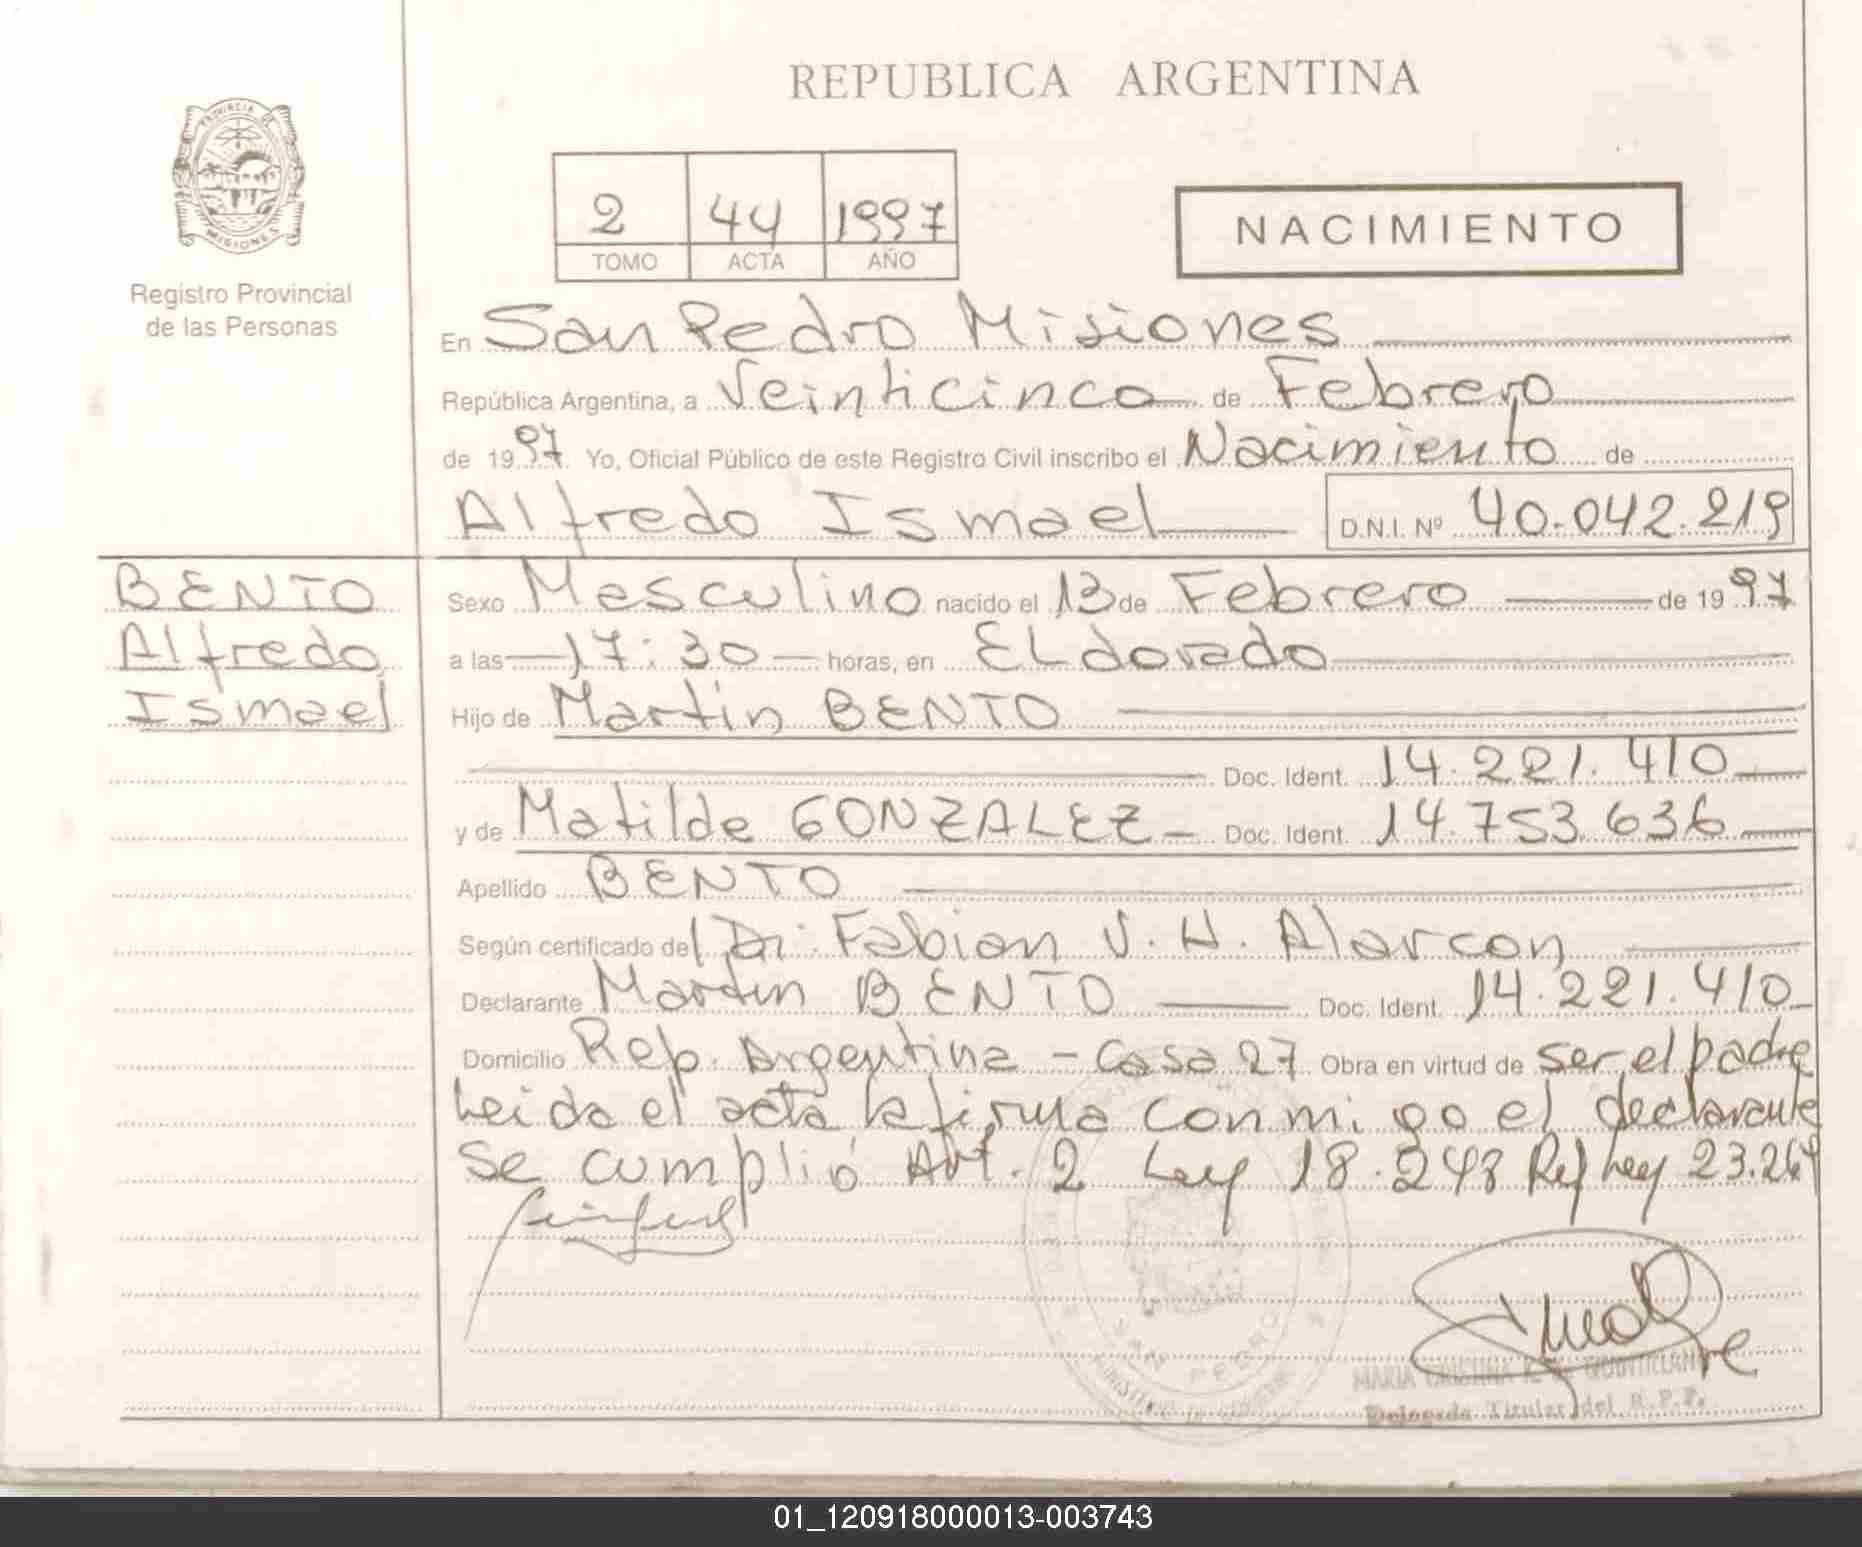 REPUBLICA ARGENTINA
PROVINCIA DE
MISIONES
Registro Provincial
de las Personas
2 44 1997
TOMO ACTA AÑO
NACIMIENTO
En San Pedro Misiones
República Argentina, a Veinticinco de Febrero
de 1997 Yo, Oficial Público de este Registro Civil inscribo el Nacimiento de
Alfredo Ismael D.N.I. Nº 40.042.219
BENTO
Alfredo
Ismael
Sexo Masculino nacido el 13 de Febrero de 1997
a las 17:30 horas, en ELdorado
Hijo de Martin BENTO
Doc. Ident. 14.221.410
y de Matilde GONZALEZ Doc. Ident. 14.753.636
Apellido BENTO
Según certificado del Dr. Fabian V. H. Alarcon
Declarante Martin BENTO Doc. Ident. 14.221.410
Domicilio Rep. Argentina - Casa 27 Obra en virtud de ser el padre
Leida el acta la firma conmigo el declarante
Se cumplió Art. 2 Ley 18.248 Ref Ley 23.264
SAN PEDRO
MARIA CRISTINA
Delegada Titular del R.P.P.
01_120918000013-003743